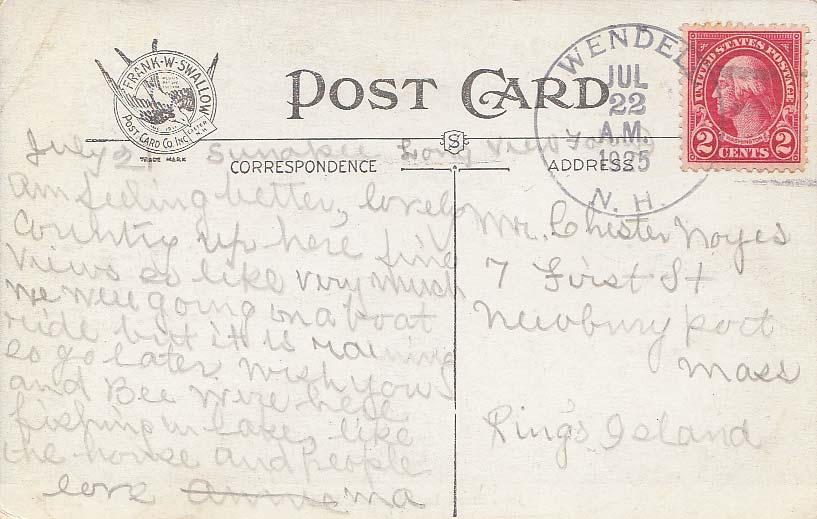 FRANK-W-SWALLOW
POST CARD CO. INC.
EXETER N.H.
TRADE MARK
POST CARD
WENDELL
JUL
22
A.M.
1925
N. H.
UNITED STATES POSTAGE
WASHINGTON
2 CENTS 2
CORRESPONDENCE
S
ADDRESS
July 21 Sunapee Long View
Am feeling better, lovely
country up here fine
views so like very much
we were going on a boat
ride but it is raining
so go later. Wish you
and Bee were here
fishing in lake, like
the house and people
love Annie ma
Mr. Chester Noyes
7 First St
Newburyport
Mass
Ring's Island